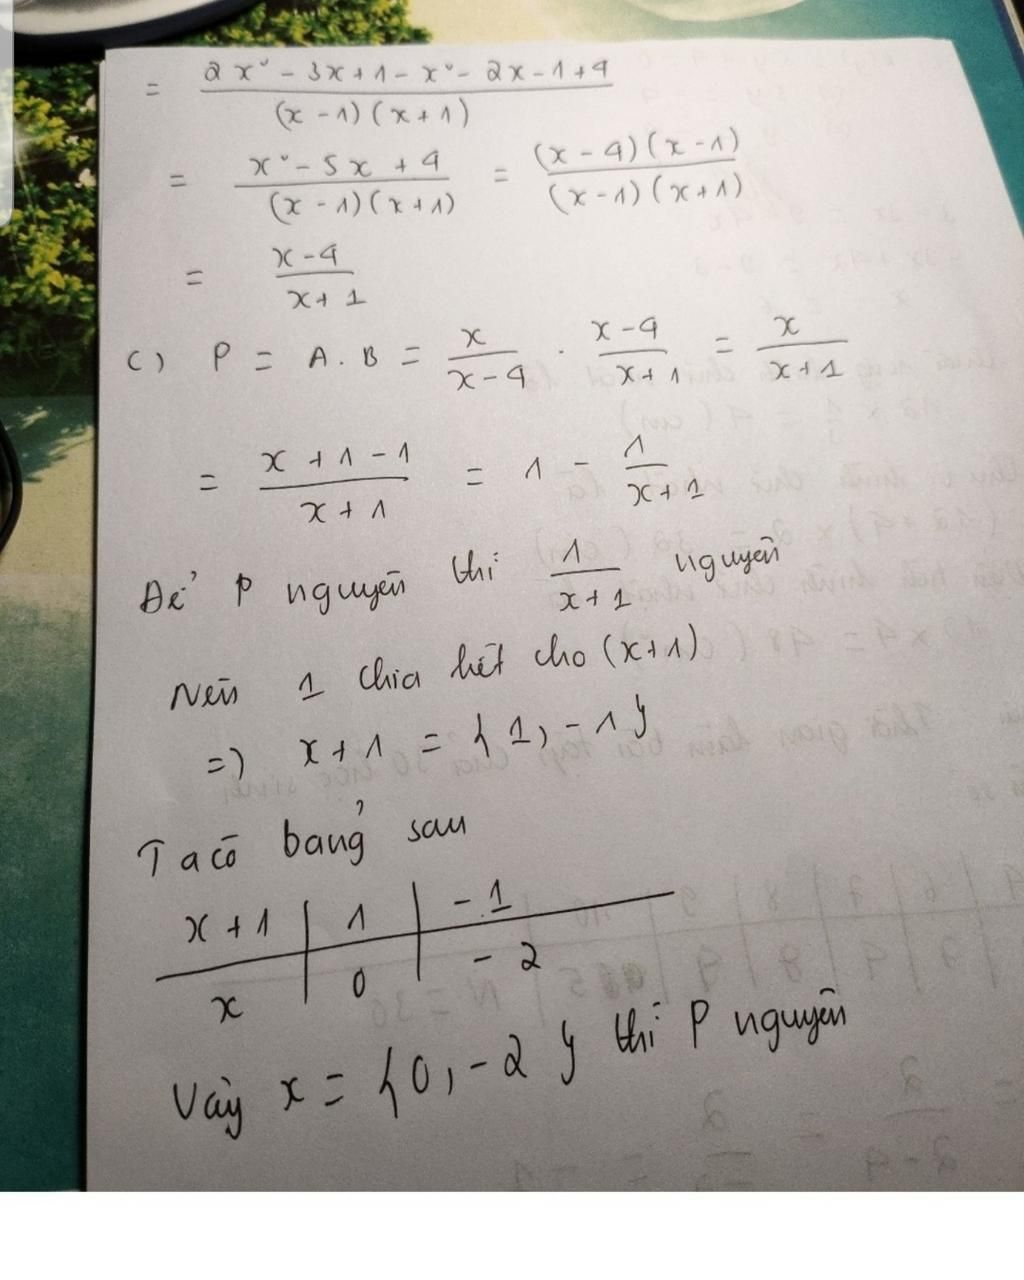 = (2x² - 3x + 1 - x² - 2x - 1 + 4) / ((x - 1)(x + 1))
= (x² - 5x + 4) / ((x - 1)(x + 1)) = ((x - 4)(x - 1)) / ((x - 1)(x + 1))
= (x - 4) / (x + 1)
C) P = A . B = x / (x - 4) . (x - 4) / (x + 1) = x / (x + 1)
= (x + 1 - 1) / (x + 1) = 1 - 1 / (x + 1)
Để P nguyên thì 1 / (x + 1) nguyên
Nên 1 chia hết cho (x+1)
=) x + 1 = {1, -1}
Ta có bảng sau
x + 1 | 1 | -1
x | 0 | -2
Vậy x = {0, -2} thì P nguyên